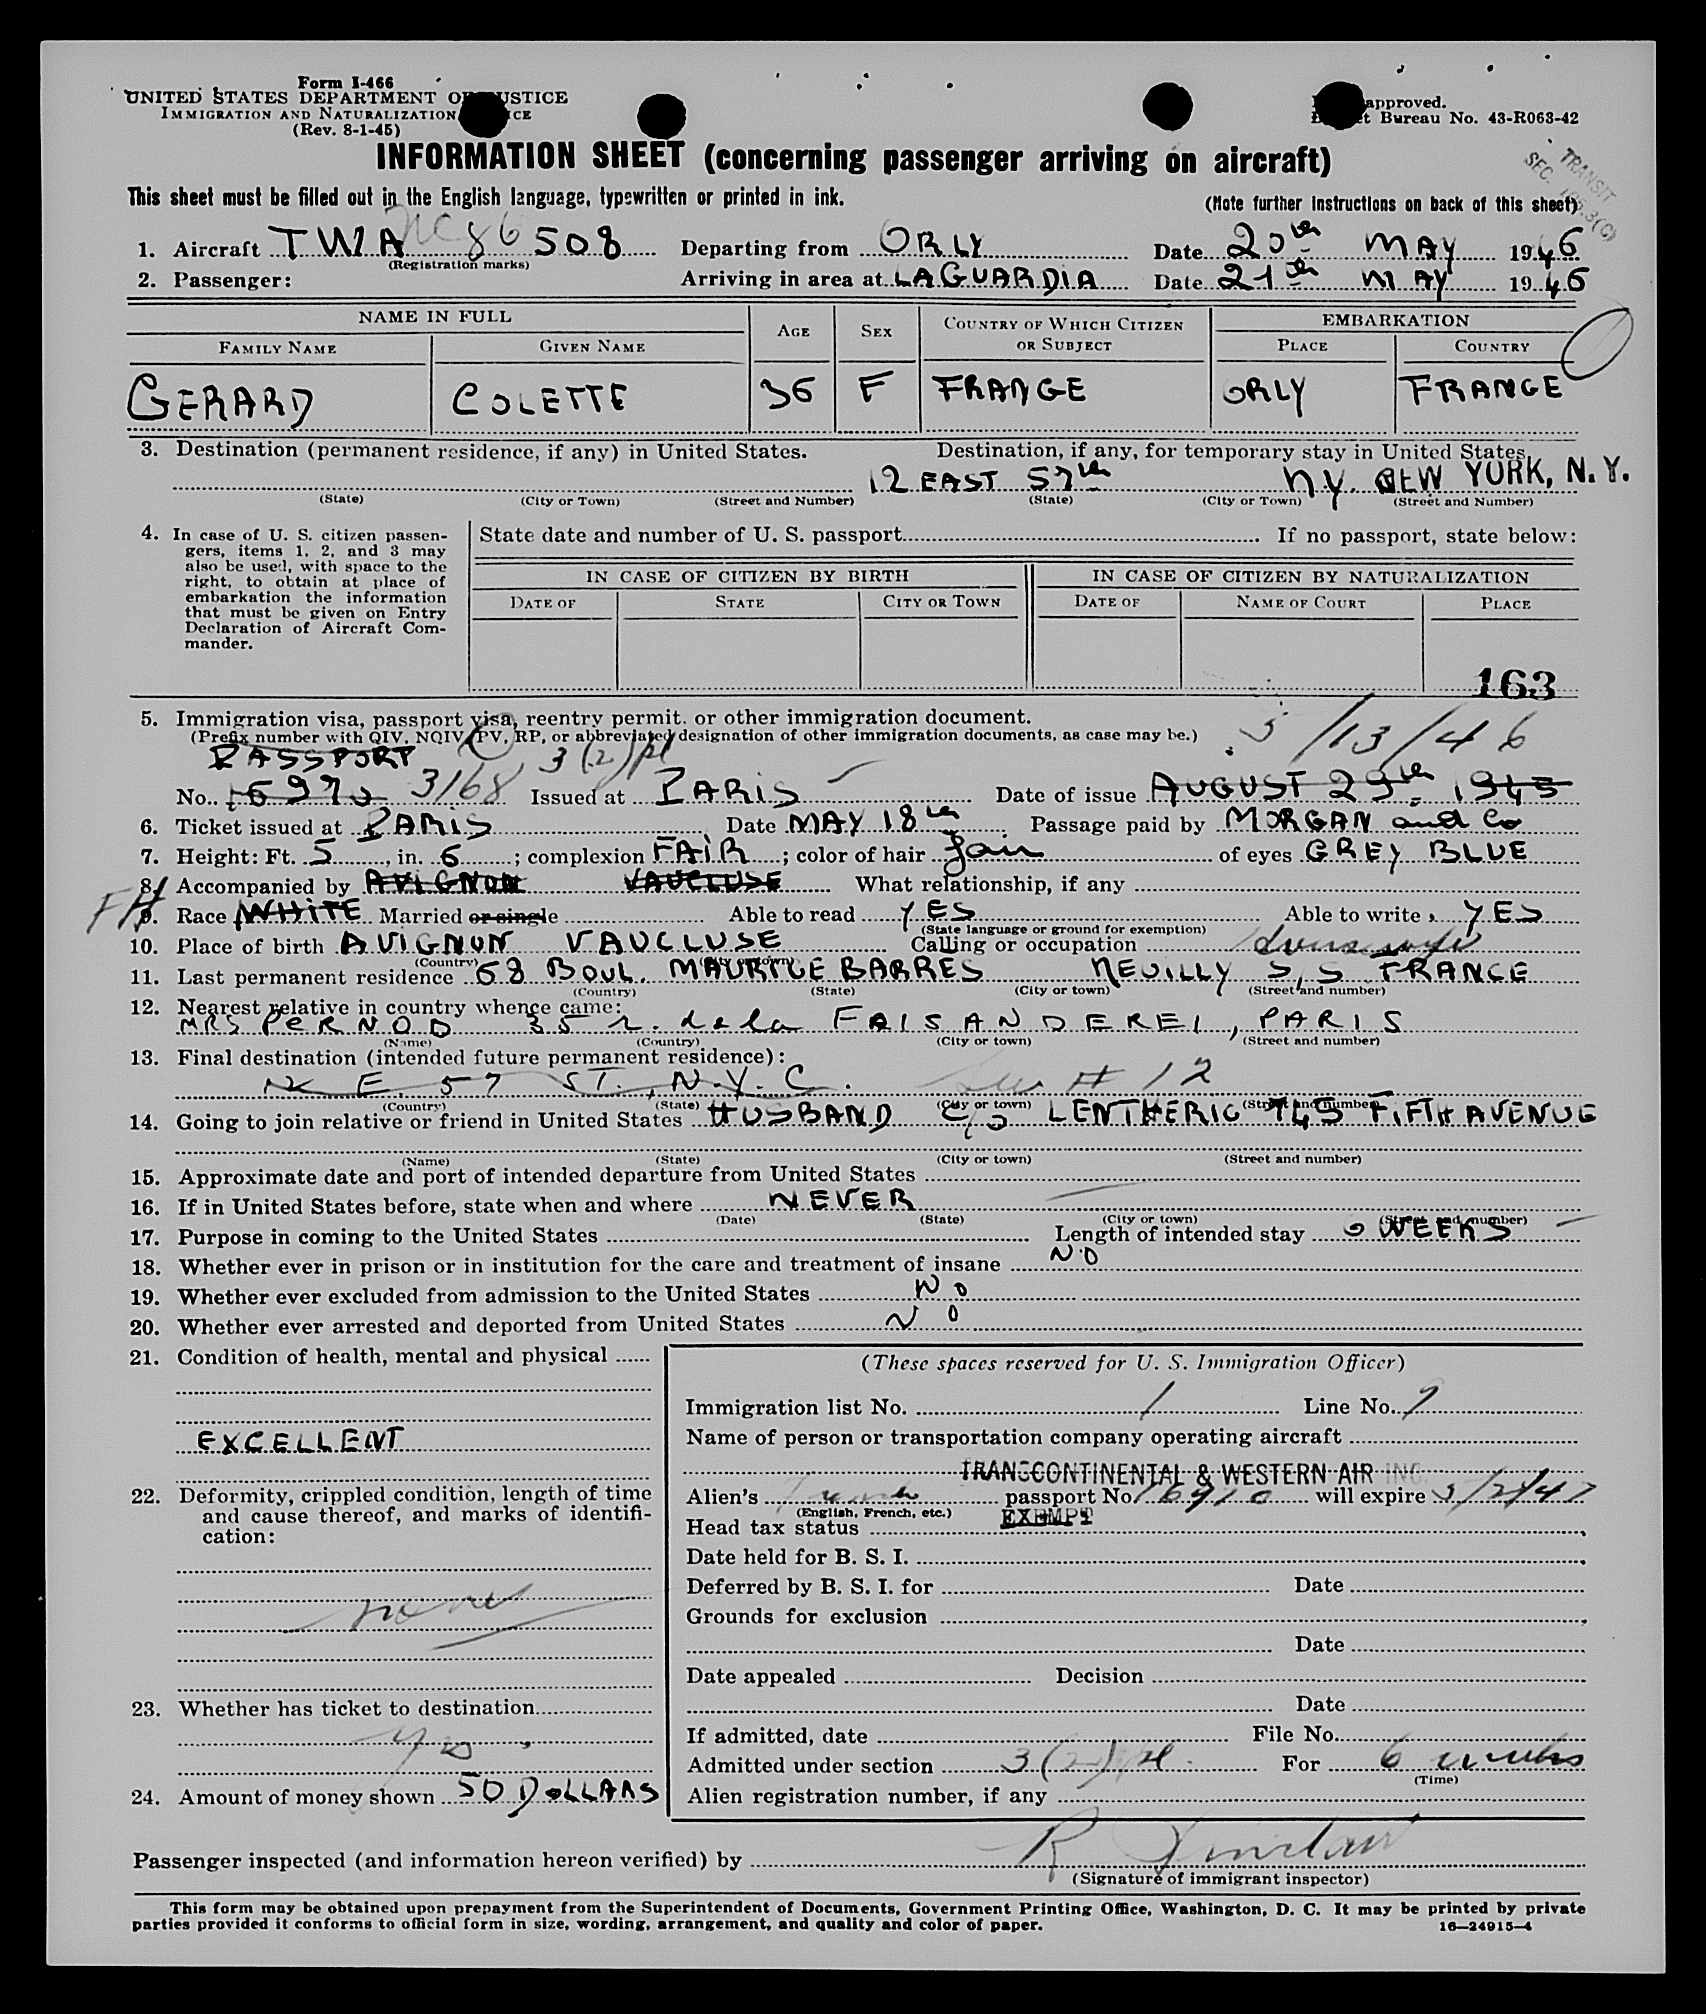 Form I-466
UNITED STATES DEPARTMENT OF JUSTICE
IMMIGRATION AND NATURALIZATION
(Rev. 8-1-45)
approved.
Bureau No. 43-R063-42
INFORMATION SHEET (concerning passenger arriving on aircraft)
TRANSIT
SEC.
This sheet must be filled out in the English language, typewritten or printed in ink.
(Note further instructions on back of this sheet)
1. Aircraft TWA NC 86 508 Departing from ORLY Date 20th MAY 1946
(Registration marks)
2. Passenger: Arriving in area at LAGUARDIA Date 21th MAY 1946
NAME IN FULL AGE SEX COUNTRY OF WHICH CITIZEN OR SUBJECT EMBARKATION
FAMILY NAME GIVEN NAME PLACE COUNTRY
GERARD COLETTE 36 F FRANCE ORLY FRANCE
3. Destination (permanent residence, if any) in United States. Destination, if any, for temporary stay in United States.
12 EAST 57th N.Y. NEW YORK, N.Y.
(State) (City or Town) (Street and Number) (State) (City or Town) (Street and Number)
4. In case of U. S. citizen passen-
gers, items 1, 2, and 3 may
also be used, with space to the
right, to obtain at place of
embarkation the information
that must be given on Entry
Declaration of Aircraft Com-
mander.
State date and number of U. S. passport If no passport, state below:
IN CASE OF CITIZEN BY BIRTH IN CASE OF CITIZEN BY NATURALIZATION
DATE OF STATE CITY OR TOWN DATE OF NAME OF COURT PLACE
163
5. Immigration visa, passport visa, reentry permit, or other immigration document.
(Prefix number with QIV, NQIV, PV, RP, or abbreviated designation of other immigration documents, as case may be.)
5/13/46
PASSPORT 3(2)
No. 3168 Issued at PARIS Date of issue AUGUST 29th 1945
6. Ticket issued at PARIS Date MAY 18th Passage paid by MORGAN and Co
7. Height: Ft. 5, in. 6; complexion FAIR; color of hair fair of eyes GREY BLUE
8. Accompanied by AVIGNON VAUCLUSE What relationship, if any
9. Race WHITE Married or single Able to read YES Able to write YES
(State language or ground for exemption)
10. Place of birth AVIGNON VAUCLUSE Calling or occupation
(Country) (City or town)
11. Last permanent residence 68 BOUL. MAURICE BARRES NEUILLY S/S FRANCE
(Country) (State) (City or town) (Street and number)
12. Nearest relative in country whence came:
MRS PERNOD 35 r. de la FAISANDEREI, PARIS
(Name) (Country) (City or town) (Street and number)
13. Final destination (intended future permanent residence):
12 E. 57 ST., N.Y.C. # 12
(Country) (State) (City or town) (Street and number)
14. Going to join relative or friend in United States HUSBAND c/o LENTHERIC 745 FIFTH AVENUE
(Name) (State) (City or town) (Street and number)
15. Approximate date and port of intended departure from United States
16. If in United States before, state when and where NEVER
(Date) (State) (City or town) (Street and number)
17. Purpose in coming to the United States Length of intended stay 6 WEEKS
18. Whether ever in prison or in institution for the care and treatment of insane NO
19. Whether ever excluded from admission to the United States NO
20. Whether ever arrested and deported from United States NO
21. Condition of health, mental and physical
EXCELLENT
22. Deformity, crippled condition, length of time
and cause thereof, and marks of identifi-
cation:
none
23. Whether has ticket to destination
yes
24. Amount of money shown 50 DOLLARS
(These spaces reserved for U. S. Immigration Officer)
Immigration list No. 1 Line No. 9
Name of person or transportation company operating aircraft
TRANSCONTINENTAL & WESTERN AIR INC.
Alien's French passport No. will expire
(English, French, etc.)
Head tax status EXEMPT
Date held for B. S. I.
Deferred by B. S. I. for Date
Grounds for exclusion
Date
Date appealed Decision
Date
If admitted, date File No.
Admitted under section 3(2) For 6 weeks
(Time)
Alien registration number, if any
Passenger inspected (and information hereon verified) by R Sinclair
(Signature of immigrant inspector)
This form may be obtained upon prepayment from the Superintendent of Documents, Government Printing Office, Washington, D. C. It may be printed by private
parties provided it conforms to official form in size, wording, arrangement, and quality and color of paper.
16—24915-4